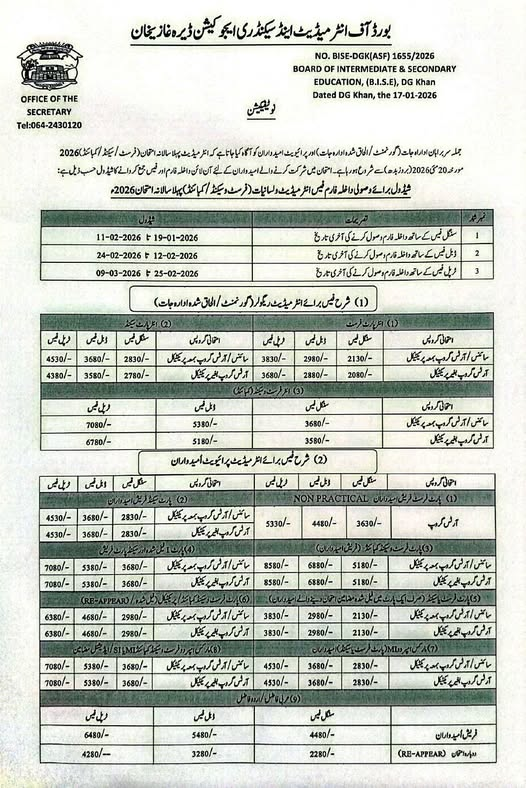 بورڈ آف انٹرمیڈیٹ اینڈ سیکنڈری ایجوکیشن ڈیرہ غازیخان
NO. BISE-DGK(ASF) 1655/2026
BOARD OF INTERMEDIATE & SECONDARY
EDUCATION, (B.I.S.E), DG Khan
Dated DG Khan, the 17-01-2026
OFFICE OF THE
SECRETARY
Tel:064-2430120
نوٹیفکیشن
جملہ سربراہان ادارہ جات (گورنمنٹ/الحاق شدہ ادارہ جات) اور پرائیویٹ امیدواران کو آگاہ کیا جاتا ہے کہ انٹرمیڈیٹ پہلا سالانہ امتحان (فرسٹ/سیکنڈ/کمبائنڈ) 2026
مورخہ 20 مئی 2026 (بروز بدھ) سے شروع ہو رہا ہے۔ امتحان میں شرکت کرنے والے امیدواران کے لئے آن لائن داخلہ فارم اور فیس جمع کروانے کا شیڈول حسب ذیل ہے:
شیڈول برائے وصولی داخلہ فارم فیس انٹرمیڈیٹ و لسانیات (فرسٹ و سیکنڈ/کمبائنڈ) پہلا سالانہ امتحان 2026ء
نمبر شمار تفصیلات شیڈول
1 سنگل فیس کے ساتھ داخلہ فارم وصول کرنے کی آخری تاریخ 19-01-2026 تا 11-02-2026
2 ڈبل فیس کے ساتھ داخلہ فارم وصول کرنے کی آخری تاریخ 12-02-2026 تا 24-02-2026
3 ٹرپل فیس کے ساتھ داخلہ فارم وصول کرنے کی آخری تاریخ 25-02-2026 تا 09-03-2026
(1) شرح فیس برائے انٹرمیڈیٹ ریگولر (گورنمنٹ/الحاق شدہ ادارہ جات)
(1) انٹر پارٹ فرسٹ (2) انٹر پارٹ سیکنڈ
امتحانی گروپس سنگل فیس ڈبل فیس ٹرپل فیس سنگل فیس ڈبل فیس ٹرپل فیس
سائنس/آرٹس گروپ بمعہ پریکٹیکل 2130/- 2980/- 3830/- 2830/- 3680/- 4530/-
آرٹس گروپ بغیر پریکٹیکل 2080/- 2880/- 3680/- 2780/- 3580/- 4380/-
(3) انٹر فرسٹ و سیکنڈ (کمبائنڈ)
امتحانی گروپس سنگل فیس ڈبل فیس ٹرپل فیس
سائنس/آرٹس گروپ بمعہ پریکٹیکل 3680/- 5380/- 7080/-
آرٹس گروپ بغیر پریکٹیکل 3580/- 5180/- 6780/-
(2) شرح فیس برائے انٹرمیڈیٹ پرائیویٹ امیدواران
امتحانی گروپس سنگل فیس ڈبل فیس ٹرپل فیس امتحانی گروپس سنگل فیس ڈبل فیس ٹرپل فیس
(1) پارٹ فرسٹ فریش امیدواران NON PRACTICAL (2) پارٹ سیکنڈ فریش امیدواران
آرٹس گروپ 3630/- 4480/- 5330/- سائنس/آرٹس گروپ بمعہ پریکٹیکل 2830/- 3680/- 4530/-
آرٹس گروپ بغیر پریکٹیکل 2830/- 3680/- 4530/-
(3) پارٹ فرسٹ و سیکنڈ کمبائنڈ (فریش امیدواران) (4) پارٹ 1 فیل شدہ اور سیکنڈ پارٹ فریش
سائنس/آرٹس گروپ بمعہ پریکٹیکل 5180/- 6880/- 8580/- سائنس/آرٹس گروپ بمعہ پریکٹیکل 3680/- 5380/- 7080/-
آرٹس گروپ بغیر پریکٹیکل 5180/- 6880/- 8580/- آرٹس گروپ بغیر پریکٹیکل 3680/- 5380/- 7080/-
(5) پارٹ فرسٹ/سیکنڈ (صرف ایک پارٹ میں فیل شدہ مضامین امتحان دینے والے امیدواران) (6) پارٹ فرسٹ و سیکنڈ کمبائنڈ (فیل شدہ/RE-APPEAR)
سائنس/آرٹس گروپ بمعہ پریکٹیکل 2130/- 2980/- 3830/- سائنس/آرٹس گروپ بمعہ پریکٹیکل 2980/- 4680/- 6380/-
آرٹس گروپ بغیر پریکٹیکل 2130/- 2980/- 3830/- آرٹس گروپ بغیر پریکٹیکل 2980/- 4680/- 6380/-
(7) مارکس امپروو MI (پارٹ فرسٹ یا سیکنڈ) امیدواران (8) مارکس امپروو فرسٹ و سیکنڈ کمبائنڈ SI یا MI/ایڈیشنل مضامین
سائنس/آرٹس گروپ بمعہ پریکٹیکل 2830/- 3680/- 4530/- سائنس/آرٹس گروپ بمعہ پریکٹیکل 3680/- 5380/- 7080/-
آرٹس گروپ بغیر پریکٹیکل 2830/- 3680/- 4530/- آرٹس گروپ بغیر پریکٹیکل 3680/- 5380/- 7080/-
(9) عربی فاضل/اردو فاضل
سنگل فیس ڈبل فیس ٹرپل فیس
فریش امیدواران 4480/- 5480/- 6480/-
دوبارہ امتحان (RE-APPEAR) 2280/- 3280/- 4280/-